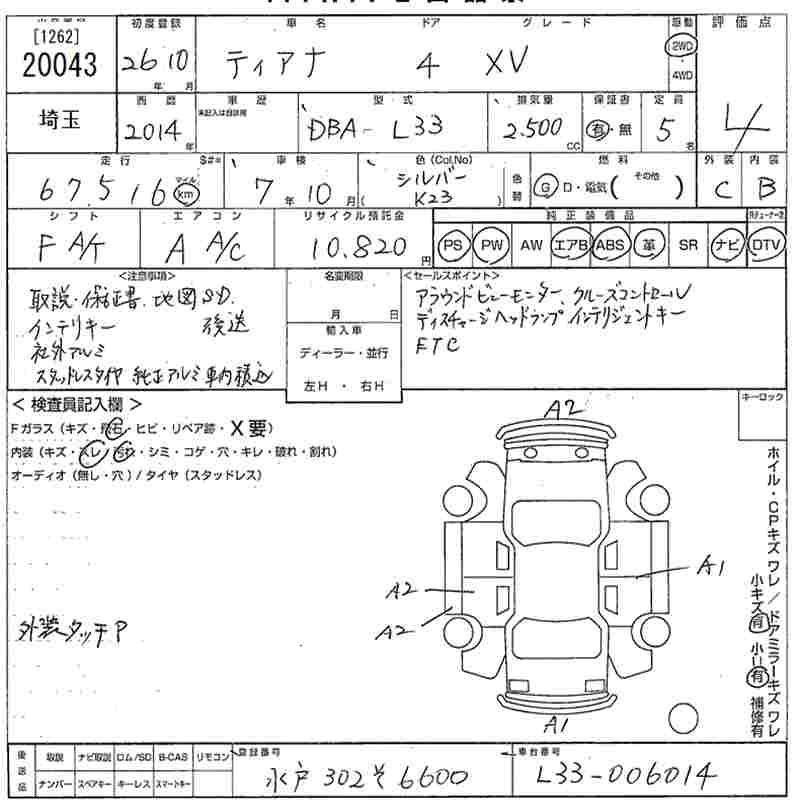 [1262]
20043
初度登録 車名 ドア グレード 駆動 評価点
26 10 年 月 ティアナ 4 XV 2WD ・4WD
埼玉
西暦 車歴 型式 排気量 保証書 定員
2014年 未記入は自家用 DBA-L33 2.500 CC 有・無 5名 4
走行 S#= 車検 色(Col,No) 燃料 外装 内装
67.516 マイル km 7年10月 シルバー K23 色替 G D・電気(その他) C B
シフト エアコン リサイクル預託金 純正装備品
F A/T A A/C 10.820円 PS PW AW エアB ABS 革 SR ナビ DTV
<注意事項> 名変期限 <セールスポイント>
取説・保証書・地図SD.
インテリキー 後送
社外アルミ
スタッドレスタイヤ 純正アルミ車内積込
月 日
輸入車
ディーラー・並行
左H ・ 右H
アラウンドビューモニター、クルーズコントロール
ディスチャージヘッドランプ インテリジェントキー
ETC
<検査員記入欄> キーロック
Fガラス(キズ・飛石・ヒビ・リペア跡・X要)
内装(キズ・スレ・汚れ・シミ・コゲ・穴・キレ・破れ・割れ)
オーディオ(無し・穴)/タイヤ(スタッドレス)
A2
A1
A2
A2
A1
外装タッチP
ホイル・CPキズ ワレ/ドアミラーキズ ワレ
小キズ有 小U有 補修有
後送品 取説 ナビ取説 ロム/SD B-CAS リモコン
ナンバー スペアキー キーレス スマートキー
登録番号 車台番号
水戸 302 そ 6600 L33-006014